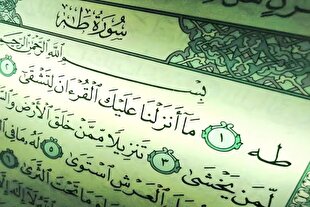 سُورَةُ طه
بِسْمِ اللَّهِ الرَّحْمَٰنِ الرَّحِيمِ
طه ١ مَا أَنزَلْنَا عَلَيْكَ الْقُرْءَانَ لِتَشْقَىٰ ٢
لِّمَن يَخْشَىٰ ٣ تَنزِيلًا مِّمَّنْ خَلَقَ الْأَرْضَ
الْعَرْشِ اسْتَوَىٰ ٥ لَهُ مَا فِي
وَمَا تَحْتَ الثَّرَىٰ ٦